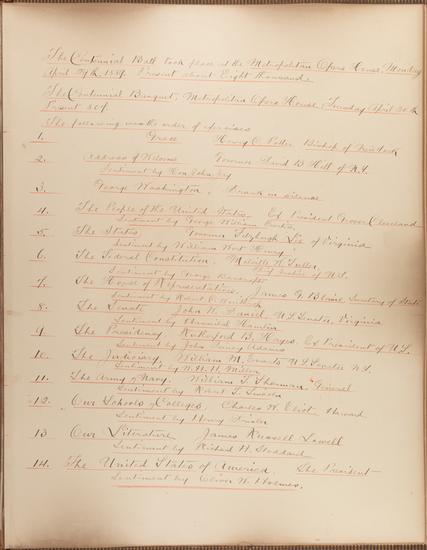 The Centennial Ball took place at the Metropolitan Opera House, Monday
April 29th, 1889. Present about Eight Thousand.
The Centennial Banquet, Metropolitan Opera House, Tuesday April 30th
Present 804.
The following was the order of exercises
1. Grace Henry C. Potter Bishop of New York
2. Address of Welcome Governor David B Hill of N.Y.
Sentiment by Hon. John Jay
3. George Washington. Drank in silence
4. The People of the United States Ex President Grover Cleveland
Sentiment by George William Curtis
5. The States Governor Fitzhugh Lee of Virginia
Sentiment by William Wirt Henry
6. The Federal Constitution. Melville W. Fuller
Sentiment by George Bancroft Chief Justice of U.S.
7. The House of Representatives, James G. Blaine, Secretary of State
Sentiment by Robert C. Winthrop
8. The Senate John W. Daniel U S Senator, Virginia
Sentiment by Hannibal Hamlin
9. The Presidency Rutherford B. Hayes, Ex President of U.S.
Sentiment by John Quincy Adams
10. The Judiciary, William M. Evarts U.S. Senator N.Y.
Sentiment by W.H.H. Miller
11. The Army & Navy. William T. Sherman General
Sentiment by Robert T. Lincoln
12. Our Schools & Colleges, Charles W. Eliot, Harvard
Sentiment by Henry
13 Our Literature James Russell Lowell
Sentiment by Richard H. Stoddard
14. The United States of America. The President
Sentiment by Oliver W. Holmes.